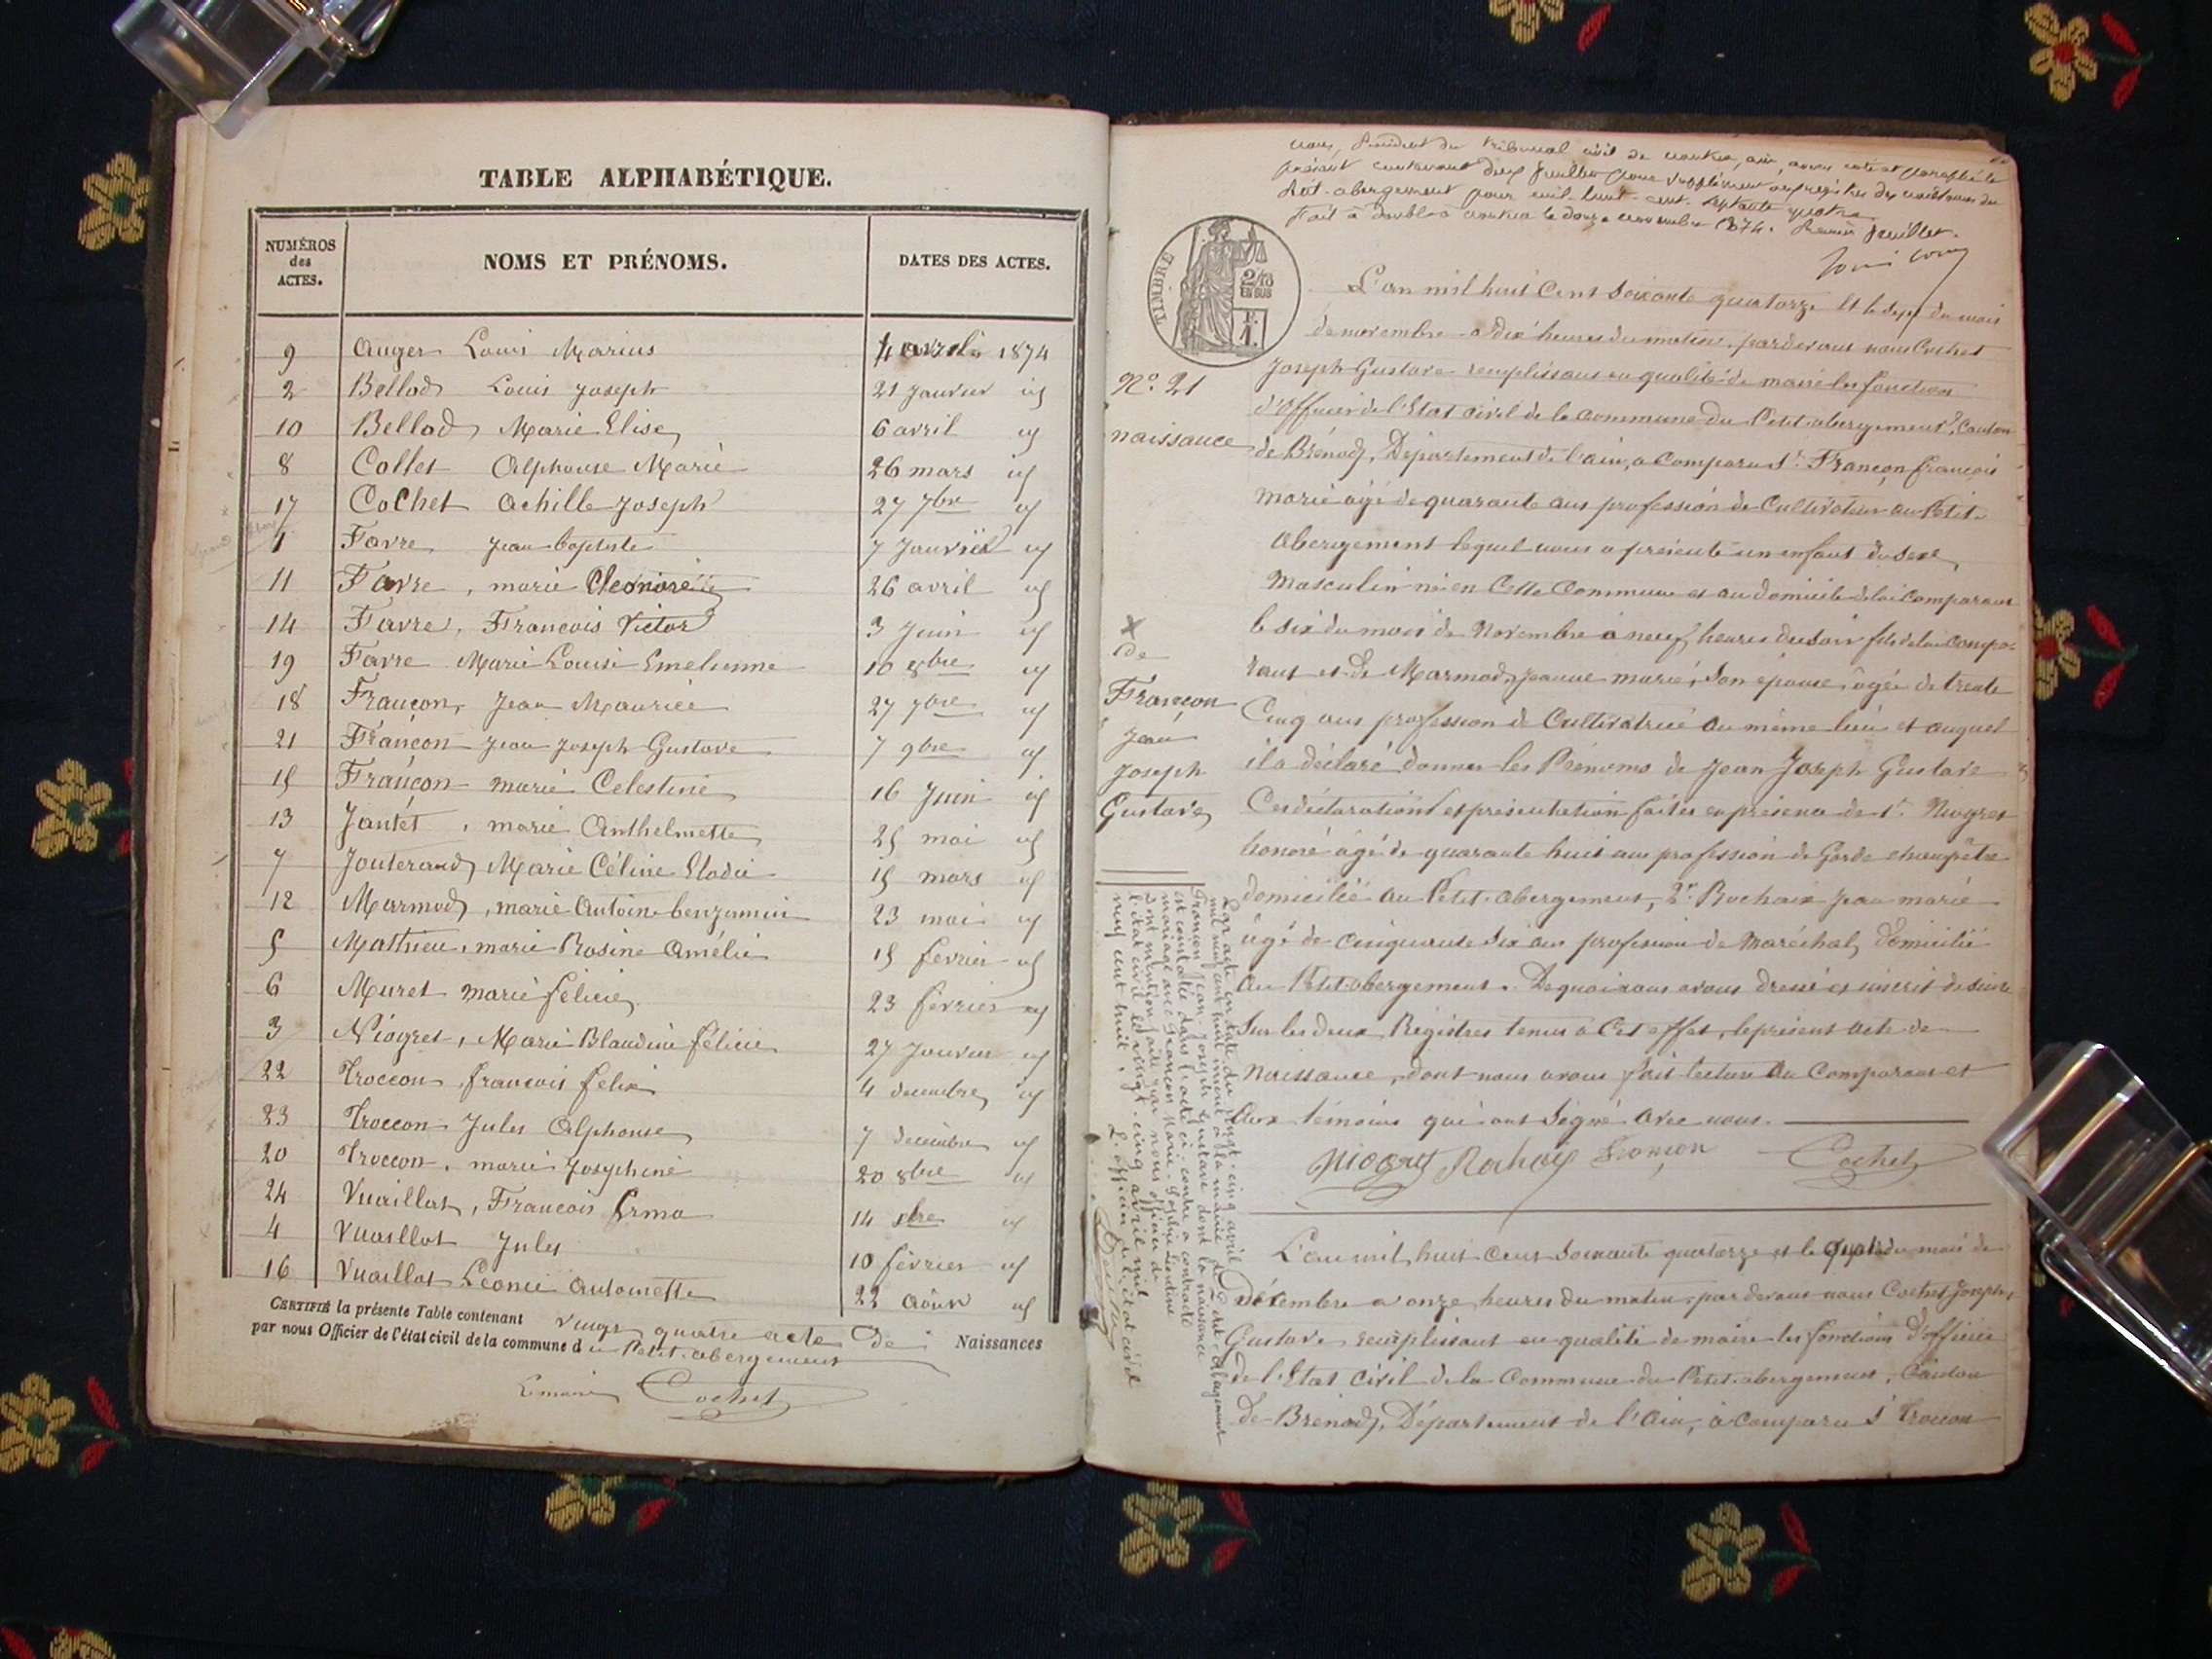 TABLE ALPHABÉTIQUE.
NUMÉROS des ACTES. NOMS ET PRÉNOMS. DATES DES ACTES.
9 Auger Louis Marius 4 avril 1874
2 Bellod Louis Joseph 21 Janvier id
10 Bellod Marie Elise 6 avril id
8 Collet Alphonse Marie 26 mars id
17 Cochet Achille Joseph 27 7bre id
1 Favre Jean baptiste 7 Janvier id
11 Favre, marie 26 avril id
14 Favre, François Victor 3 Juin id
19 Favre Marie Louise Emelienne 10 8bre id
18 Françon, Jean Maurice 27 7bre id
21 Françon Jean Joseph Gustave 7 9bre id
15 Françon marie Celestine 16 Juin id
13 Jantet, marie Anthelmette 25 mai id
7 Jouterand Marie Céline Elodie 15 mars id
12 Marmod, marie Antoine benjamin 23 mai id
5 Mathieu, marie Rosine Amélie 15 fevrier id
6 Muret marie félicie 23 février id
3 Niogret, Marie Blandine félicie 27 Janvier id
22 Troccon, françois felix 4 decembre id
23 Troccon Jules Alphonse 7 decembre id
20 Troccon, marie Josephine 20 8bre id
24 Vuaillat, François 14 id
4 Vuaillat Jules 10 février id
16 Vuaillat Léonie Antoinette 22 Août id
CERTIFIÉ la présente Table contenant vingt quatre acte de Naissances
par nous Officier de l'état civil de la commune du Petit-abergement
Le maire Cochet
nous, Président du tribunal civil de nantua, ain, avons coté et paraphé le
présent contenant deux feuilles pour supplément au registre des naissances du
Petit-abergement pour mil-huit-cent-septante quatre
Fait à double à nantua le douze novembre 1874. Premier feuillet.
TIMBRE
2/10
EN SUS
F.
1.
L'an mil huit Cent Soixante quatorze et le sept du mois
de novembre à dix heures du matin, pardevant nous Cochet
Joseph Gustave remplissant en qualité de maire les fonction
d'Officier de l'Etat civil de la commune du Petit-abergement, Canton
de Brénod, Département de l'ain, a comparu Sr. Françon françois
marie âgé de quarante ans profession de Cultivateur au Petit-
Abergement lequel nous a présenté un enfant du sexe
Masculin né en Cette Commune et au domicile de lui Comparant
le six du mois de Novembre à neuf heures du soir fils de lui Compa-
rant et de Marmod Jeanne marie, son épouse, âgée de trente
Cinq ans profession de Cultivatrice au même lieu et auquel
il a déclaré donner les Prénoms de Jean Joseph Gustave
Ces déclaration et présentation faites en présence de 1r. Niogret
honoré âgé de quarante huit ans profession de Garde champêtre
domicilié au Petit-abergement, 2r. Rochaix Jean marie
âgé de cinquante Six ans profession de Maréchal, domicilié
Au Petit-abergement. De quoi nous avons dressé et inscrit de suite
Sur les deux Registres tenus à Cet effet, le présent acte de
Naissance, dont nous avons fait lecture Au Comparant et
Aux témoins qui ont Signé Avec nous.
Niogret Françon Cochet
No. 21
naissance
de
Françon
Jean
Joseph
Gustave
Par acte en date du vingt-cinq avril
mil neuf cent huit inscrit à la mairie de Petit-Abergement
Françon Jean-Joseph Gustave dont la naissance
est constatée dans l'acte ci-contre a contracté
mariage avec Françon Marie-Josephine
mention faite par nous officier de
l'état civil le vingt-cinq avril mil
neuf cent huit. L'officier de l'état civil
L'an mil huit cent Soixante quatorze et le quatre du mois de
Décembre à onze heures du matin, pardevant nous Cochet Joseph
Gustave remplissant en qualité de maire les fonctions d'officier
de l'Etat Civil de la Commune du Petit-abergement, Canton
de Brénod, Département de l'Ain, a comparu Sr Troccon